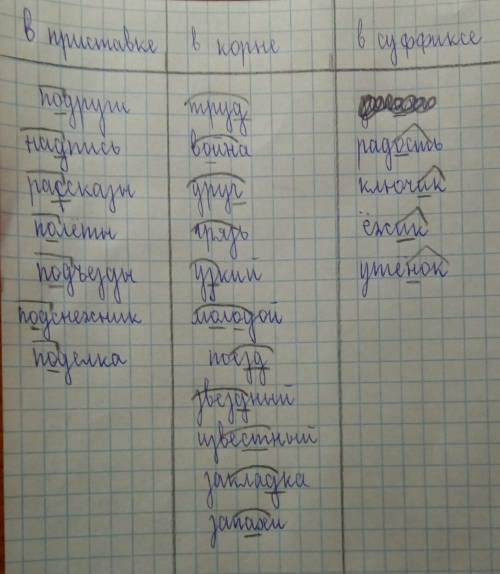 в приставке в корне в суффиксе
подруги труд
надпись война радость
рассказы друг ключик
полёты грязь ёжик
подъезды узкий утёнок
подснежник молодой
поделка поезд
звездный
известный
закладка
запахи